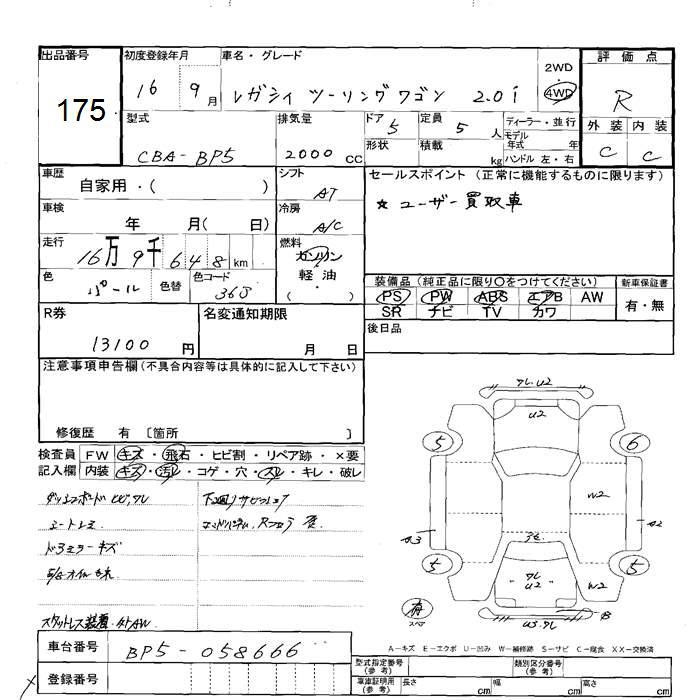 出品番号
175
初度登録年月
16 9月
車名・グレード
レガシィ ツーリングワゴン 2.0i
2WD
4WD
評価点
R
外装 内装
C C
型式
CBA-BP5
排気量
2000 CC
ドア 5
形状
定員 5 人
積載 kg
ディーラー・並行
モデル
年式 年
ハンドル 左・右
車歴
自家用・( )
シフト
AT
車検
年 月( 日)
冷房
A/C
走行
16万9千648 km
燃料
ガソリン
軽油
( )
色
パール
色替
色コード
36J
R券
13100 円
名変通知期限
月 日
セールスポイント(正常に機能するものに限ります)
☆ユーザー買取車
装備品(純正品に限り○をつけてください)
PS PW ABS エアB AW
SR ナビ TV カワ
新車保証書
有・無
後日品
注意事項申告欄(不具合内容等は具体的に記入して下さい)
修復歴 有 〔箇所 〕
検査員
記入欄
FW キズ・飛石・ヒビ割・リペア跡・×要
内装 キズ・汚レ・コゲ・穴・スレ・キレ・破レ
ダッシュボードヒビ,ワレ
シートレミ
ドアミラーキズ
下廻りサビ
スタットレス装着
車台番号
BP5-058666
登録番号
ワレ.U2
U2
5
6
W2
A3
A2
5
5
ワレ
U2
W2
B
U3.ワレ
有
スペア
A-キズ E-エクボ U-凹み W-補修跡 S-サビ C-腐食 XX-交換済
型式指定番号
(参考)
類別区分番号
(参考)
車庫証明用
(参考)
長さ cm
幅 cm
高さ cm